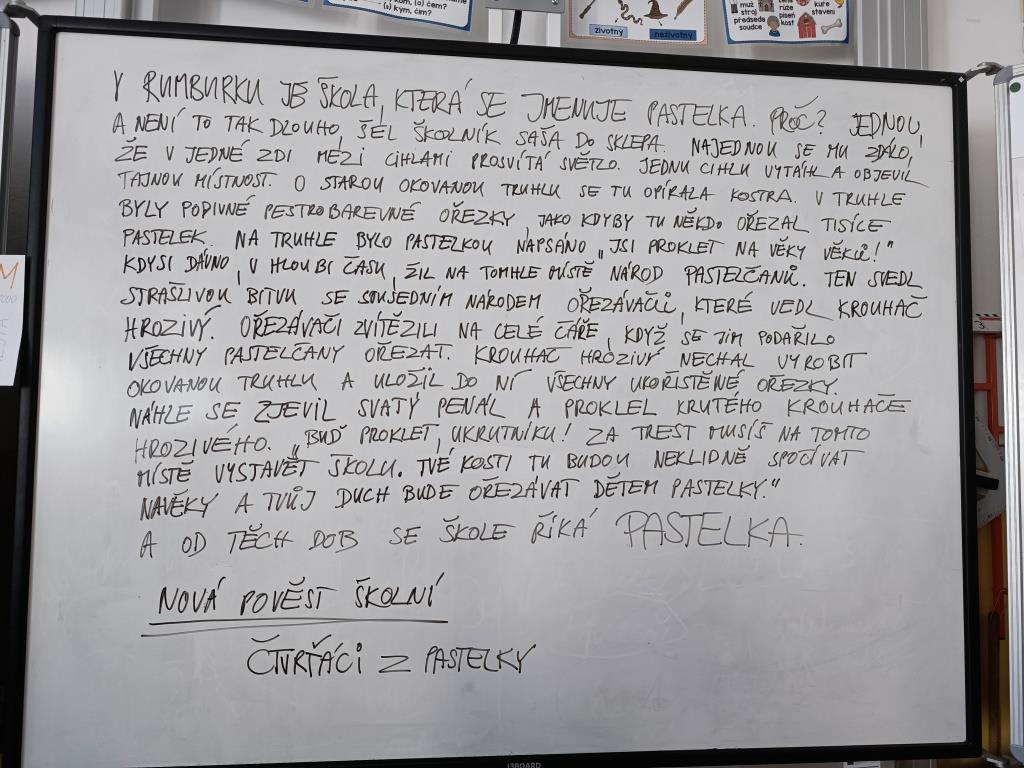 kom, (o) čem?
(s) kým, čím?
životný
neživotný
muž
stroj
předseda
soudce
růže
píseň
kost
kuře
stavení
V RUMBURKU JE ŠKOLA, KTERÁ SE JMENUJE PASTELKA. PROČ? JEDNOU,
A NENÍ TO TAK DLOUHO, ŠEL ŠKOLNÍK SAŠA DO SKLEPA. NAJEDNOU SE MU ZDÁLO,
ŽE V JEDNÉ ZDI MEZI CIHLAMI PROSVÍTÁ SVĚTLO. JEDNU CIHLU VYTÁHL A OBJEVIL
TAJNOU MÍSTNOST. O STAROU OKOVANOU TRUHLU SE TU OPÍRALA KOSTRA. V TRUHLE
BYLY PODIVNÉ PESTROBAREVNÉ OŘEZKY, JAKO KDYBY TU NĚKDO OŘEZAL TISÍCE
PASTELEK. NA TRUHLE BYLO PASTELKOU NAPSÁNO „JSI PROKLET NA VĚKY VĚKŮ!"
KDYSI DÁVNO, V HLOUBI ČASU, ŽIL NA TOMHLE MÍSTĚ NÁROD PASTELČANŮ. TEN SVEDL
STRAŠLIVOU BITVU SE SOUSEDNÍM NÁRODEM OŘEZÁVAČŮ, KTERÉ VEDL KROUHAČ
HROZIVÝ. OŘEZÁVAČI ZVÍTĚZILI NA CELÉ ČÁŘE, KDYŽ SE JIM PODAŘILO
VŠECHNY PASTELČANY OŘEZAT. KROUHAČ HROZIVÝ NECHAL VYROBIT
OKOVANOU TRUHLU A ULOŽIL DO NÍ VŠECHNY UKOŘISTĚNÉ OŘEZKY.
NÁHLE SE ZJEVIL SVATÝ PENÁL A PROKLEL KRUTÉHO KROUHAČE
HROZIVÉHO. „BUĎ PROKLET, UKRUTNÍKU! ZA TREST MUSÍŠ NA TOMTO
MÍSTĚ VYSTAVĚT ŠKOLU. TVÉ KOSTI TU BUDOU NEKLIDNĚ SPOČÍVAT
NAVĚKY A TVŮJ DUCH BUDE OŘEZÁVAT DĚTEM PASTELKY."
A OD TĚCH DOB SE ŠKOLE ŘÍKÁ PASTELKA.
NOVÁ POVĚST ŠKOLNÍ
ČTVRŤÁCI Z PASTELKY
i3BOARD